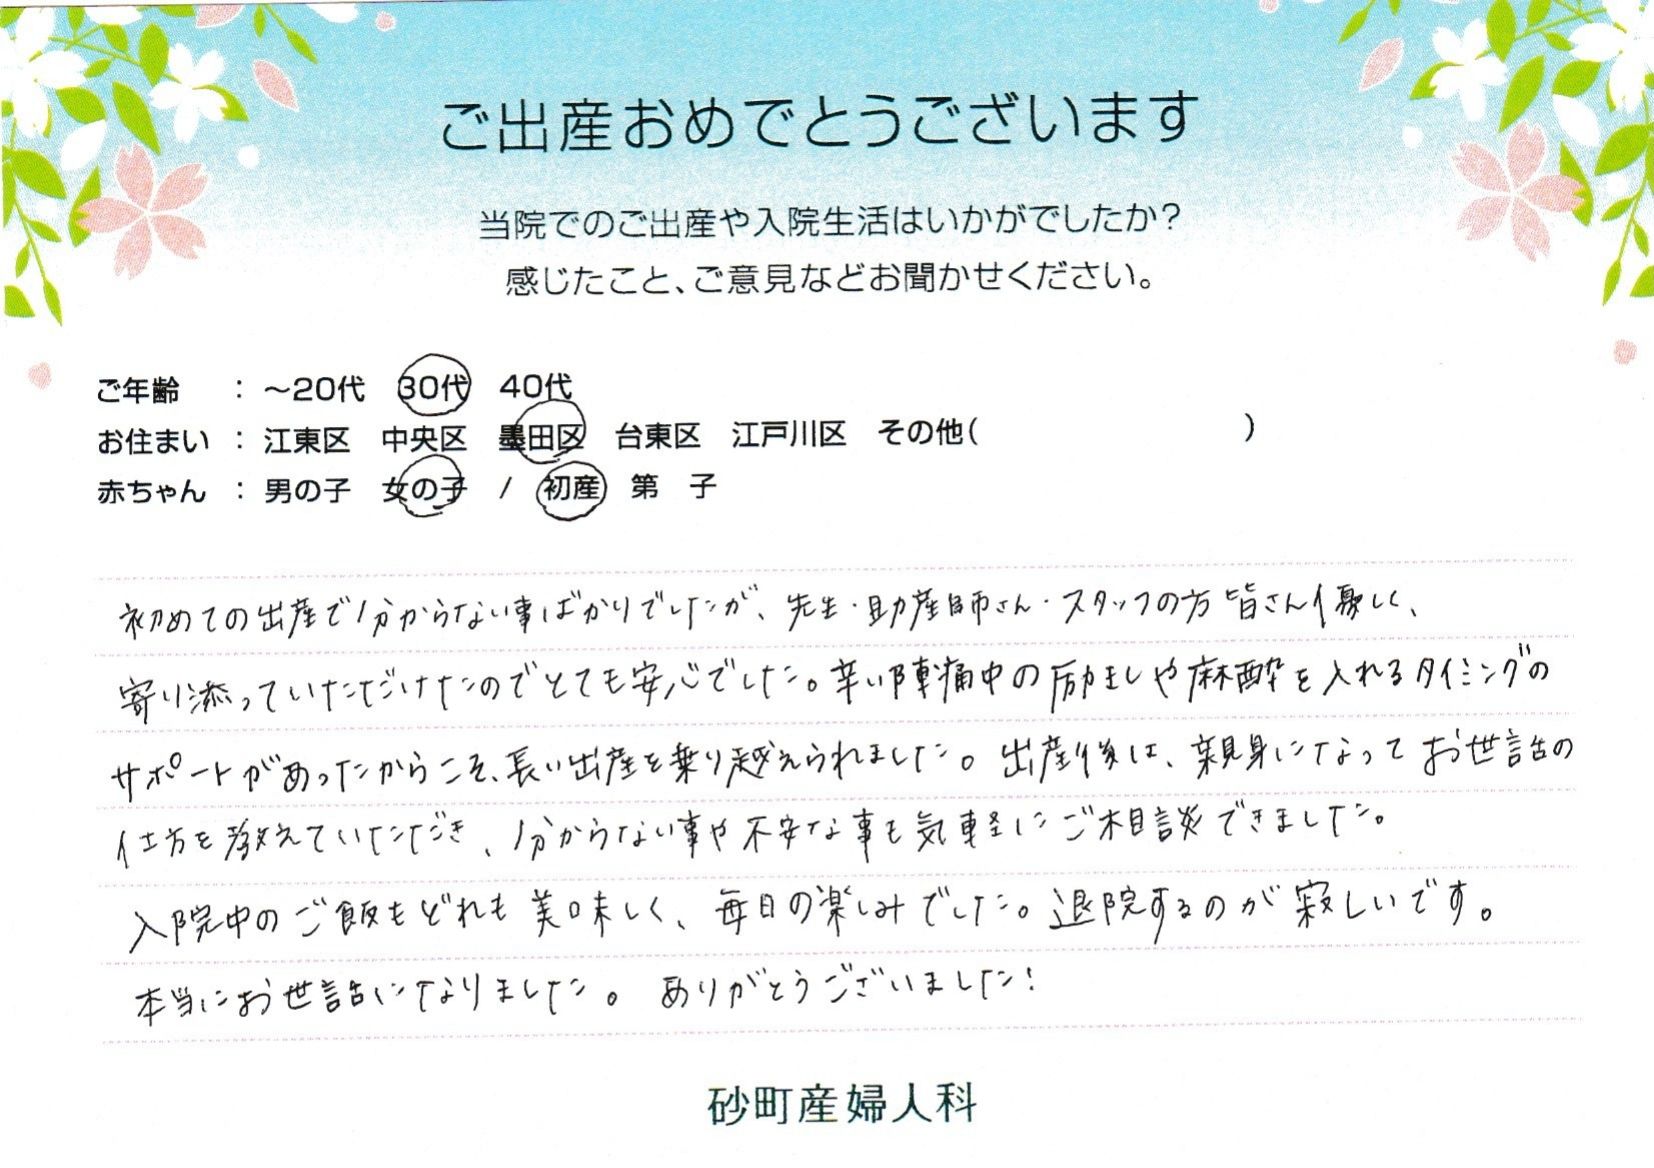 ご出産おめでとうございます
当院でのご出産や入院生活はいかがでしたか?
感じたこと、ご意見などお聞かせください。
ご年齢 : ～20代 30代 40代
お住まい : 江東区 中央区 墨田区 台東区 江戸川区 その他( )
赤ちゃん : 男の子 女の子 / 初産 第 子
初めての出産で分からない事ばかりでしたが、先生・助産師さん・スタッフの方皆さん優しく、
寄り添っていただけたのでとても安心でした。辛い陣痛中の励ましや麻酔を入れるタイミングの
サポートがあったからこそ、長い出産を乗り越えられました。出産後は、親身になってお世話の
仕方を教えていただき、分からない事や不安な事も気軽にご相談できました。
入院中のご飯もどれも美味しく、毎日の楽しみでした。退院するのが寂しいです。
本当にお世話になりました。ありがとうございました!
砂町産婦人科